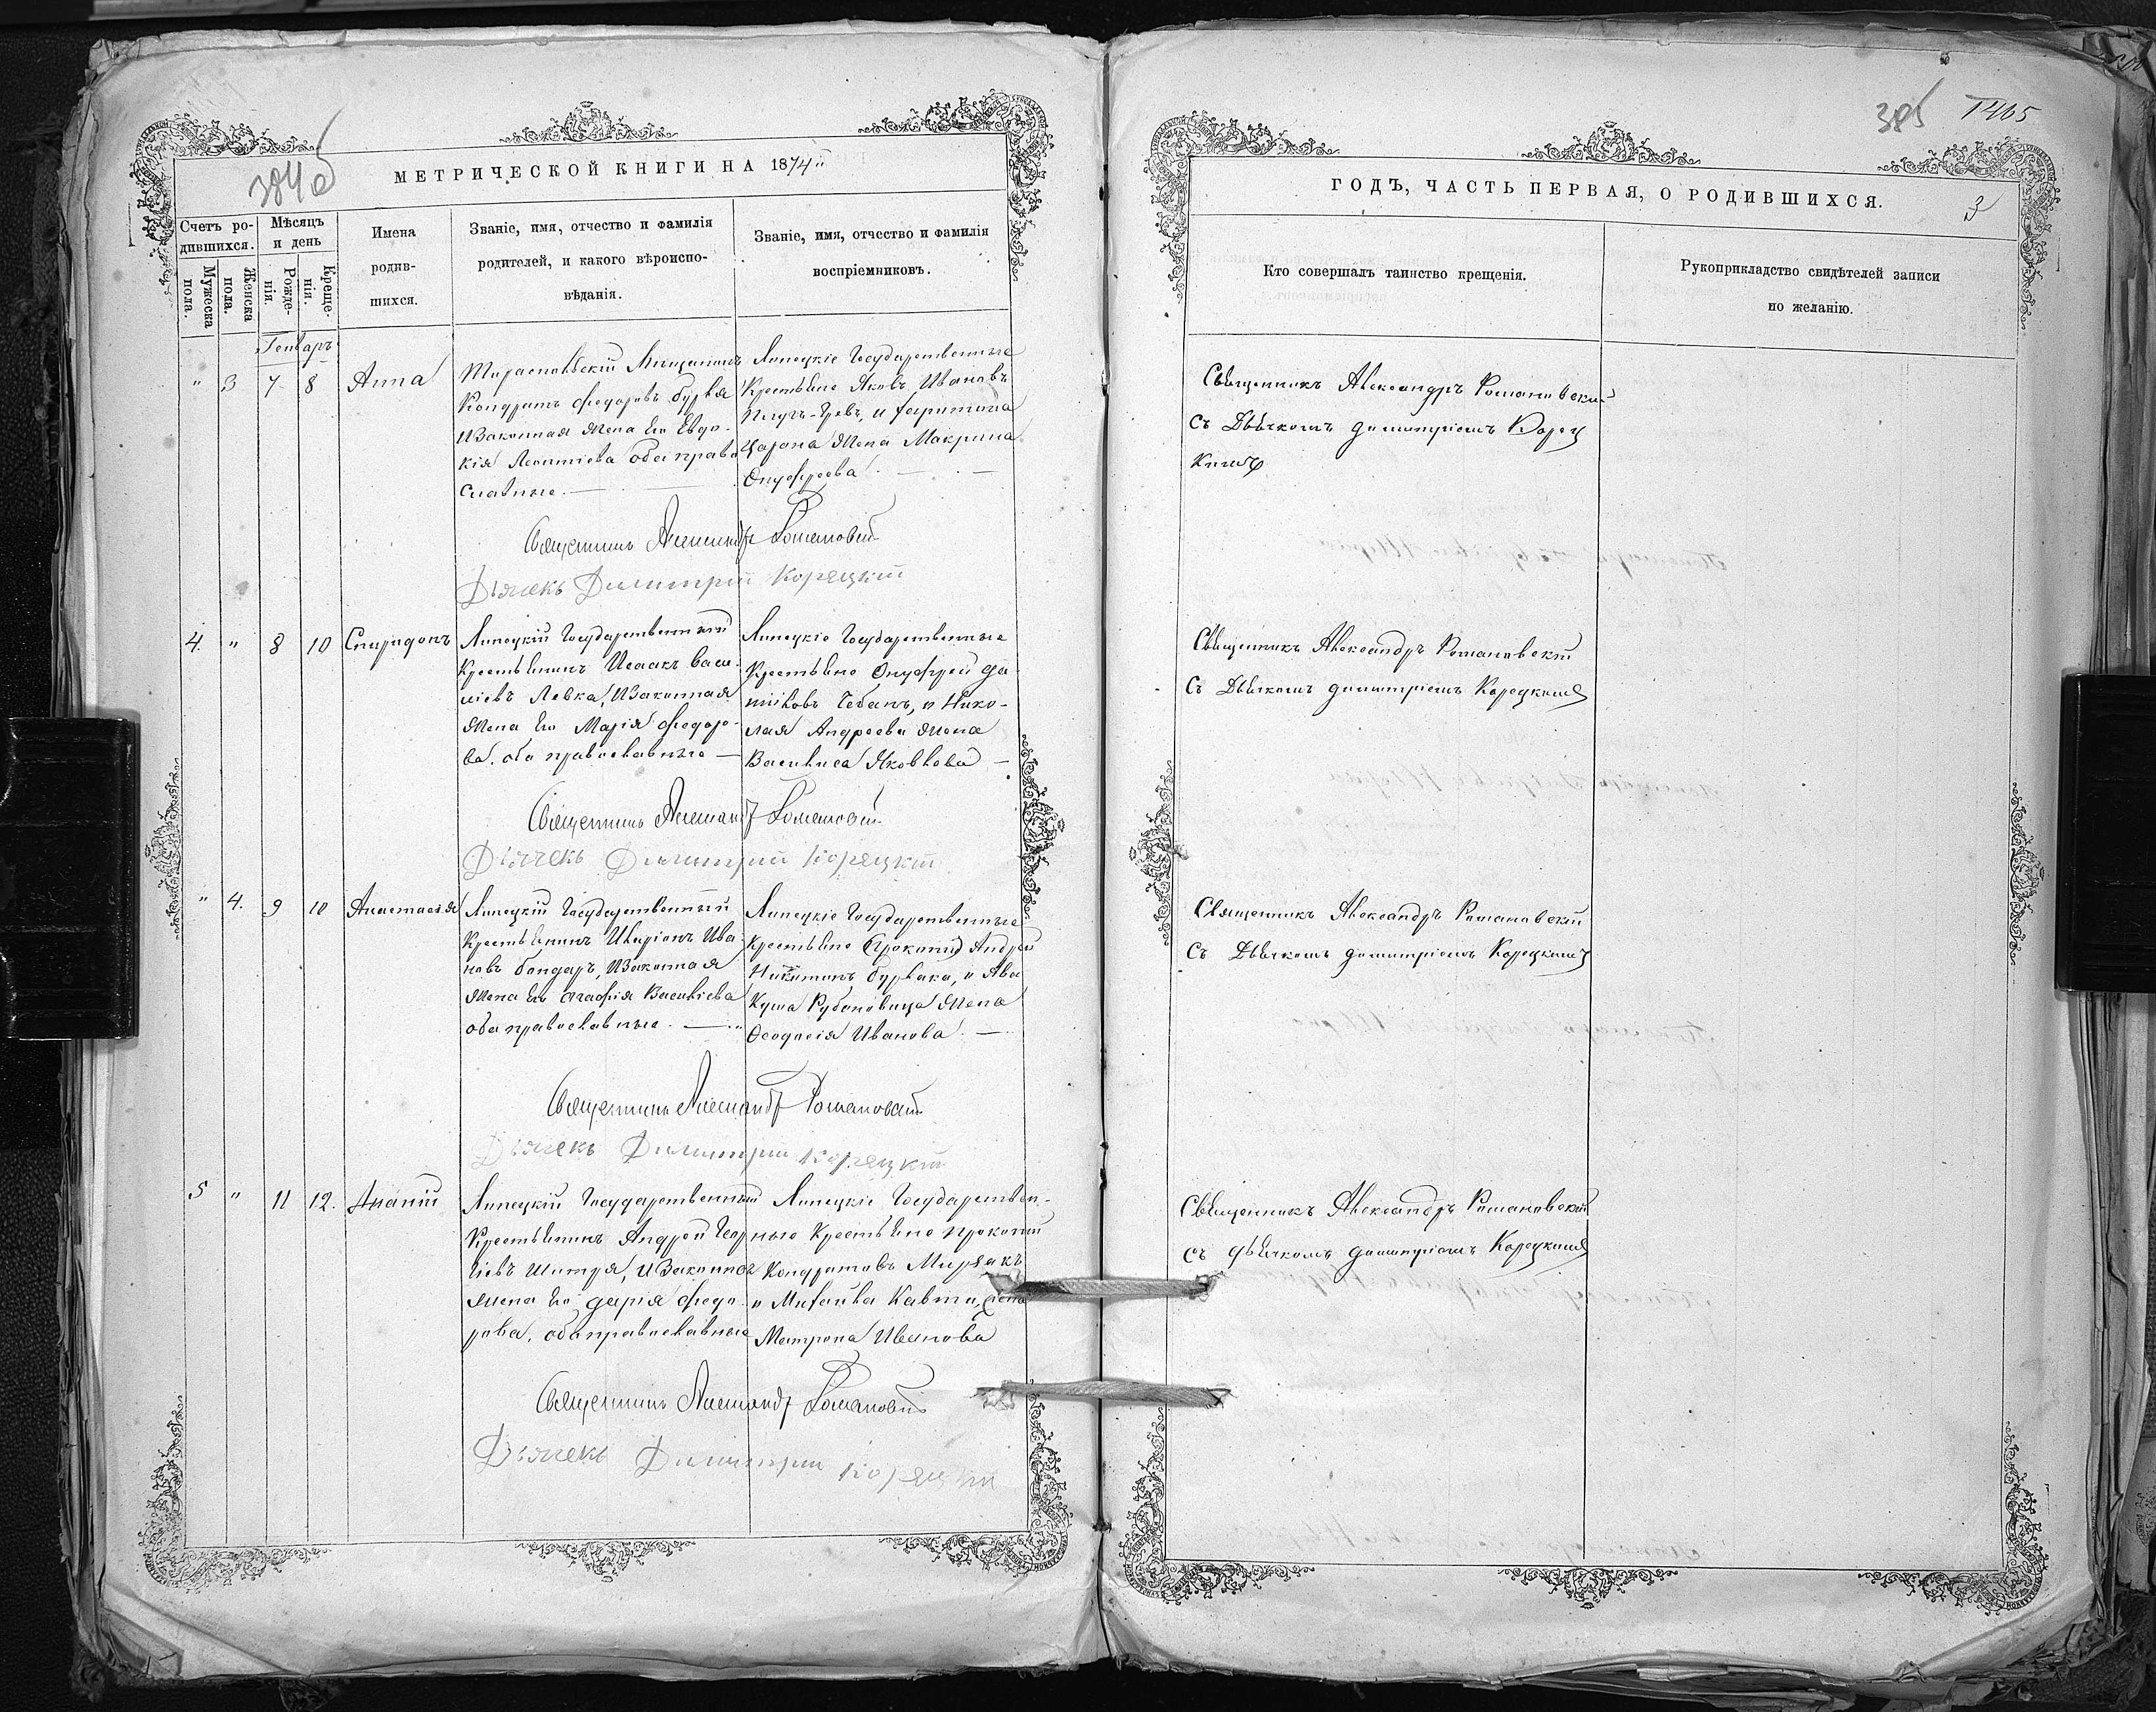 384 об
МЕТРИЧЕСКОЙ КНИГИ НА 1874
Счетъ родившихся.
Мужеска пола.
Женска пола.
Мѣсяцъ и день
Рожденія.
Крещенія.
Имена родившихся.
Званіе, имя, отчество и фамилія
родителей, и какого вѣроиспо-
вѣданія.
Званіе, имя, отчество и фамилія
воспріемниковъ.
Генварь
" 3 7 8 Анна
Тираспольскій Мѣщанинъ
Кондратъ Федоровъ
и Законная Жена Его Евдо-
кія Леонтіева оба право
славные.
Липецкіе Государственные
Крестьяне Яковъ Ивановъ
и Харитона
Жена Макрина
Онуфріева
Священникъ Александръ Романовскій
Дьячекъ Димитрій Корецкій
4. " 8 10 Спиридонъ
Липецкій Государственный
Крестьянинъ Исаакъ Васи-
ліевъ Левка, и Законная
Жена Его Марія Федоро-
ва. оба православные
Липецкіе Государственные
Крестьяне Онуфрей Да
ніиловъ Чебанъ, и Нико-
лая Андреева Жена
Василиса Яковлева
Священникъ Александръ Романовскій
Дьячекъ Димитрій Корецкій
" 4. 9 10 Анастасія
Липецкій Государственный
Крестьянинъ Иларіонъ Ива
новъ Бондарь, и Законная
Жена Его Агафія Василіева
оба православные.
Липецкіе Государственные
Крестьяне Андрей
Никитинъ Бурлака, и Ава
кума Жена
Феодосія Иванова
Священникъ Александръ Романовскій
Дьячекъ Димитрій Корецкій
5 " 11 12. Ананій
Липецкій Государственный
Крестьянинъ Андрей Геор
гіевъ и Законная
Жена Его Дарія Федо-
рова, оба православные
Липецкіе Государствен-
ные Крестьяне Прокопій
Кондратовъ
и Михаила Жена
Матрона Иванова
Священникъ Александръ Романовскій
Дьячекъ Димитрій Корецкій
385 1465
ГОДЪ, ЧАСТЬ ПЕРВАЯ, О РОДИВШИХСЯ.
3
Кто совершалъ таинство крещенія.
Рукоприкладство свидѣтелей записи
по желанію.
Священникъ Александръ Романовскій
съ Дьячкомъ Димитріемъ Корец
кимъ
Священникъ Александръ Романовскій
съ Дьячкомъ Димитріемъ Корецкимъ
Священникъ Александръ Романовскій
съ Дьячкомъ Димитріемъ Корецкимъ
Священникъ Александръ Романовскій
съ Дьячкомъ Димитріемъ Корецкимъ